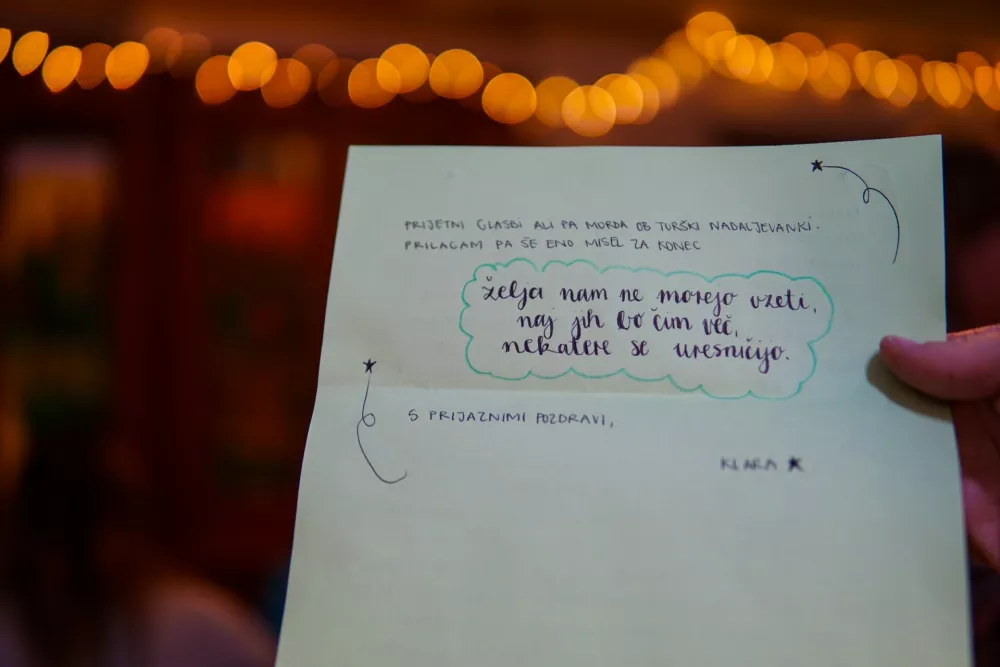 PRIJETNI GLASBI ALI PA MORDA OB TURŠKI NADALJEVANKI.
PRILAGAM PA ŠE ENO MISEL ZA KONEC
želja nam ne morejo vzeti,
naj jih bo čim več,
nekatere se uresničijo.
S PRIJAZNIMI POZDRAVI,
KLARA